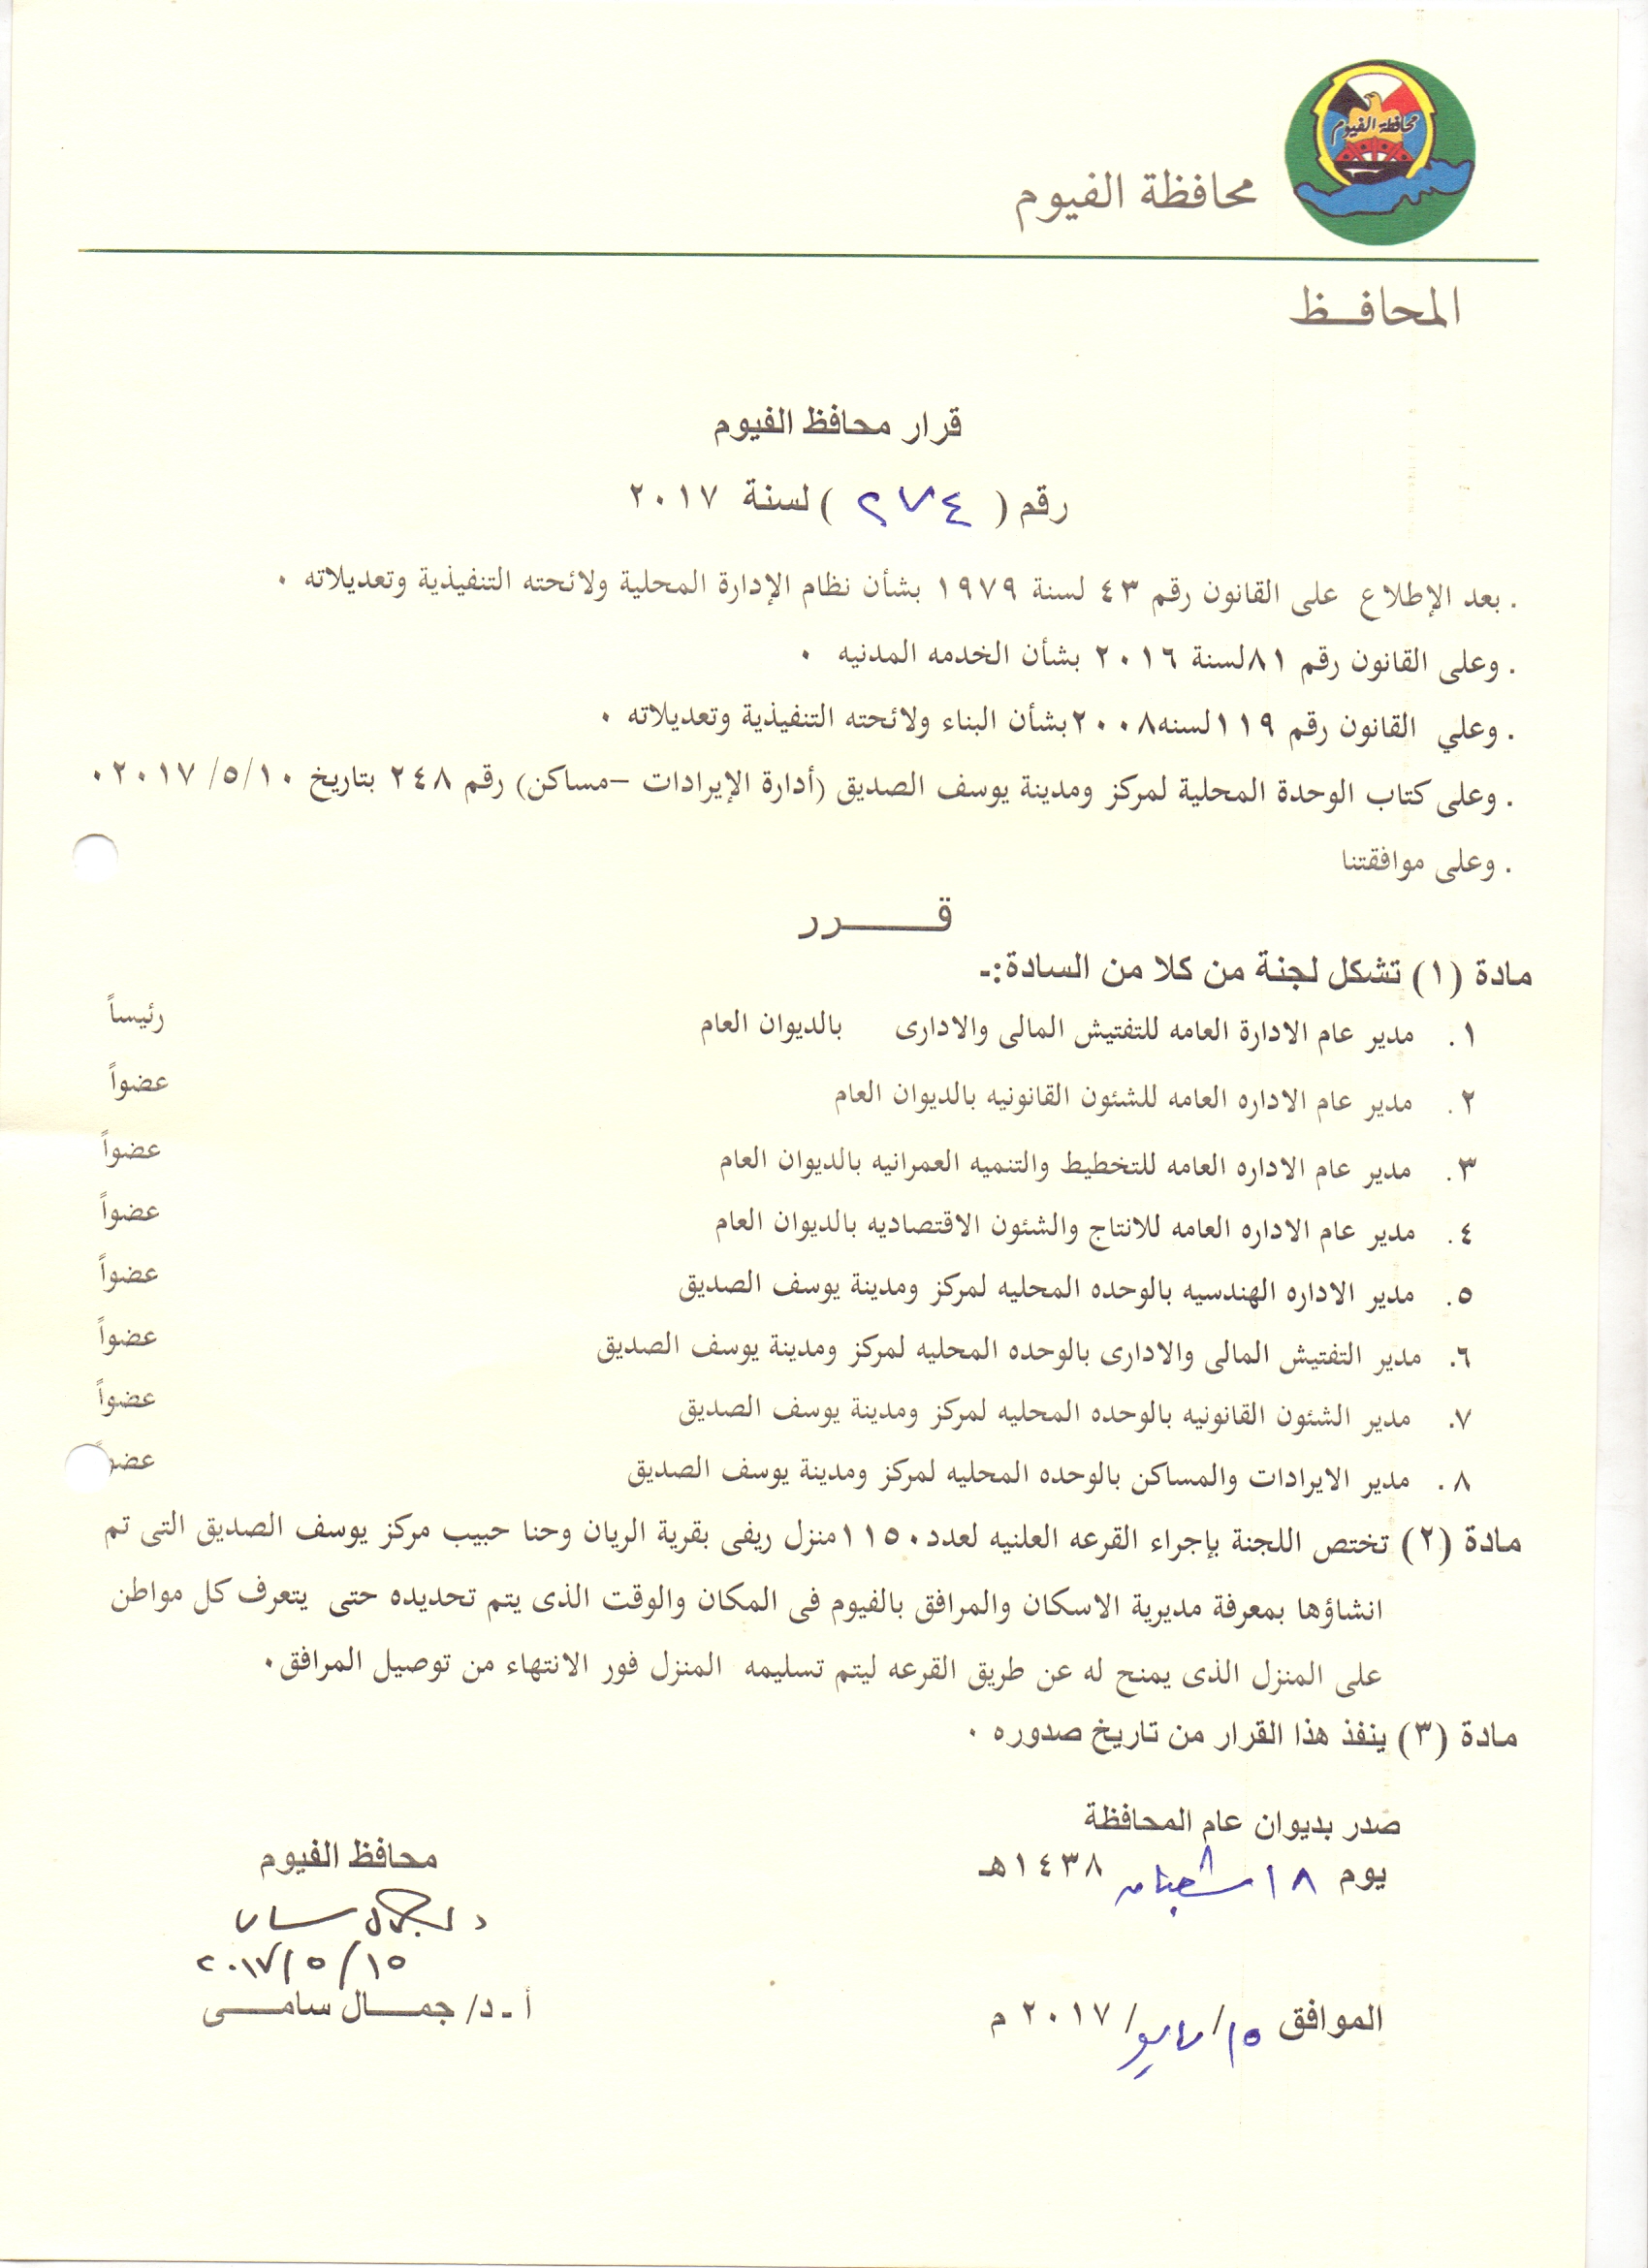 محافظة الفيوم
محافظة الفيوم
المحافــظ
قرار محافظ الفيوم
رقم ( ٢٧٤ ) لسنة ٢٠١٧
. بعد الإطلاع على القانون رقم ٤٣ لسنة ١٩٧٩ بشأن نظام الإدارة المحلية ولائحته التنفيذية وتعديلاته ٠
. وعلى القانون رقم ٨١لسنة ٢٠١٦ بشأن الخدمه المدنيه ٠
. وعلي القانون رقم ١١٩لسنه٢٠٠٨بشأن البناء ولائحته التنفيذية وتعديلاته ٠
. وعلى كتاب الوحدة المحلية لمركز ومدينة يوسف الصديق (أدارة الإيرادات –مساكن) رقم ٢٤٨ بتاريخ ٢٠١٧/٥/١٠ ٠
. وعلى موافقتنا
قـــــرر
مادة (١) تشكل لجنة من كلا من السادة:ـ
١. مدير عام الادارة العامه للتفتيش المالى والادارى بالديوان العام رئيساً
٢. مدير عام الاداره العامه للشئون القانونيه بالديوان العام عضواً
٣. مدير عام الاداره العامه للتخطيط والتنميه العمرانيه بالديوان العام عضواً
٤. مدير عام الاداره العامه للانتاج والشئون الاقتصاديه بالديوان العام عضواً
٥. مدير الاداره الهندسيه بالوحده المحليه لمركز ومدينة يوسف الصديق عضواً
٦. مدير التفتيش المالى والادارى بالوحده المحليه لمركز ومدينة يوسف الصديق عضواً
٧. مدير الشئون القانونيه بالوحده المحليه لمركز ومدينة يوسف الصديق عضواً
٨. مدير الايرادات والمساكن بالوحده المحليه لمركز ومدينة يوسف الصديق عضواً
مادة (٢) تختص اللجنة بإجراء القرعه العلنيه لعدد١١٥٠منزل ريفى بقرية الريان وحنا حبيب مركز يوسف الصديق التى تم
انشاؤها بمعرفة مديرية الاسكان والمرافق بالفيوم فى المكان والوقت الذى يتم تحديده حتى يتعرف كل مواطن
على المنزل الذى يمنح له عن طريق القرعه ليتم تسليمه المنزل فور الانتهاء من توصيل المرافق٠
مادة (٣) ينفذ هذا القرار من تاريخ صدوره ٠
صدر بديوان عام المحافظة
يوم ١٨ شعبان ١٤٣٨هـ
الموافق ١٥/مايو/٢٠١٧ م
محافظ الفيوم
د جمال سامى
٢٠١٧/٥/١٥
أ ـ د/ جمــــال سامــــى